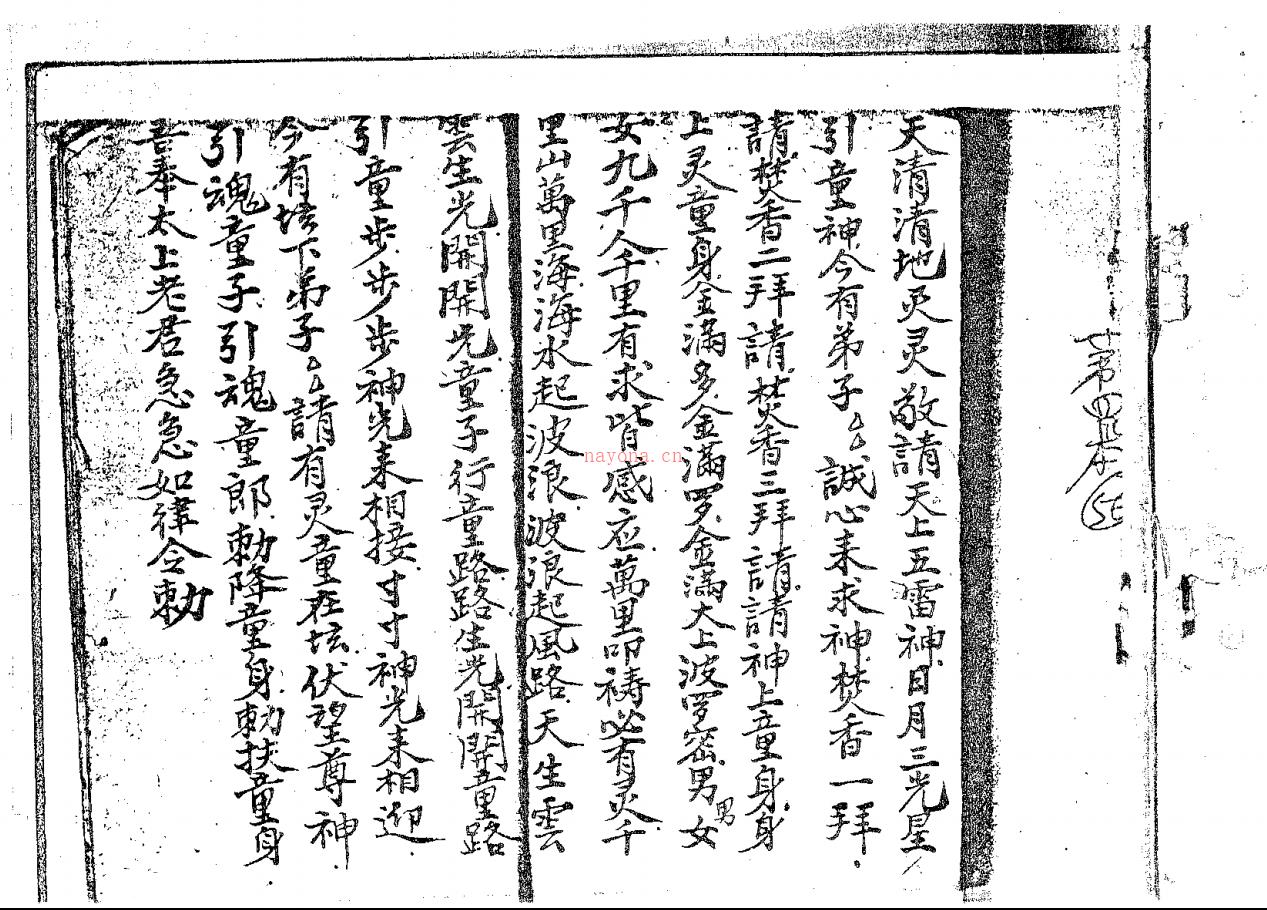 第四本
天清清地灵灵敬請天上五雷神日月三光星
引童神今有弟子厶厶誠心来求神焚香一拜
請焚香二拜請焚香三拜請請神上童身身
上灵童身金滿多金滿罗金滿大上波罗密男男女
女九千人千里有求皆感应萬里叩祷必有灵千
里山萬里海海水起波浪波浪起風路天生雲
雲生光開開光童子行童路路生光開開童路
引童步步步步神光来相接寸寸神光来相迎
今有坛下弟子厶厶請有灵童在坛伏望尊神
引魂童子引魂童郎勅降童身勅扶童身
吾奉太上老君急急如律令勅
nayona.cn